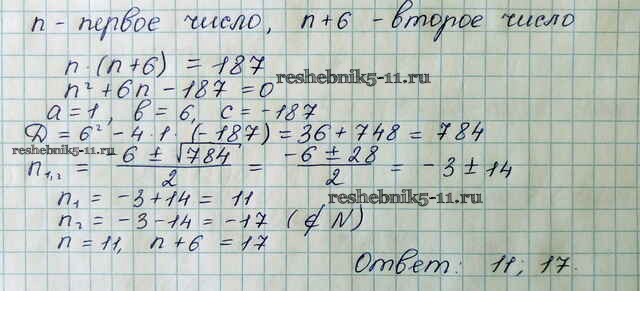 n - первое число, n+6 - второе число
n·(n+6) = 187
n² + 6n - 187 = 0
reshebnik5-11.ru
a = 1, b = 6, c = -187
D = 6² - 4·1·(-187) = 36 + 748 = 784
reshebnik5-11.ru
n₁,₂ = (6 ± √784)/2 = (-6 ± 28)/2 = -3 ± 14
n₁ = -3+14 = 11
reshebnik5-11.ru
n₂ = -3-14 = -17 (∉ N)
n = 11, n+6 = 17
Ответ: 11; 17.